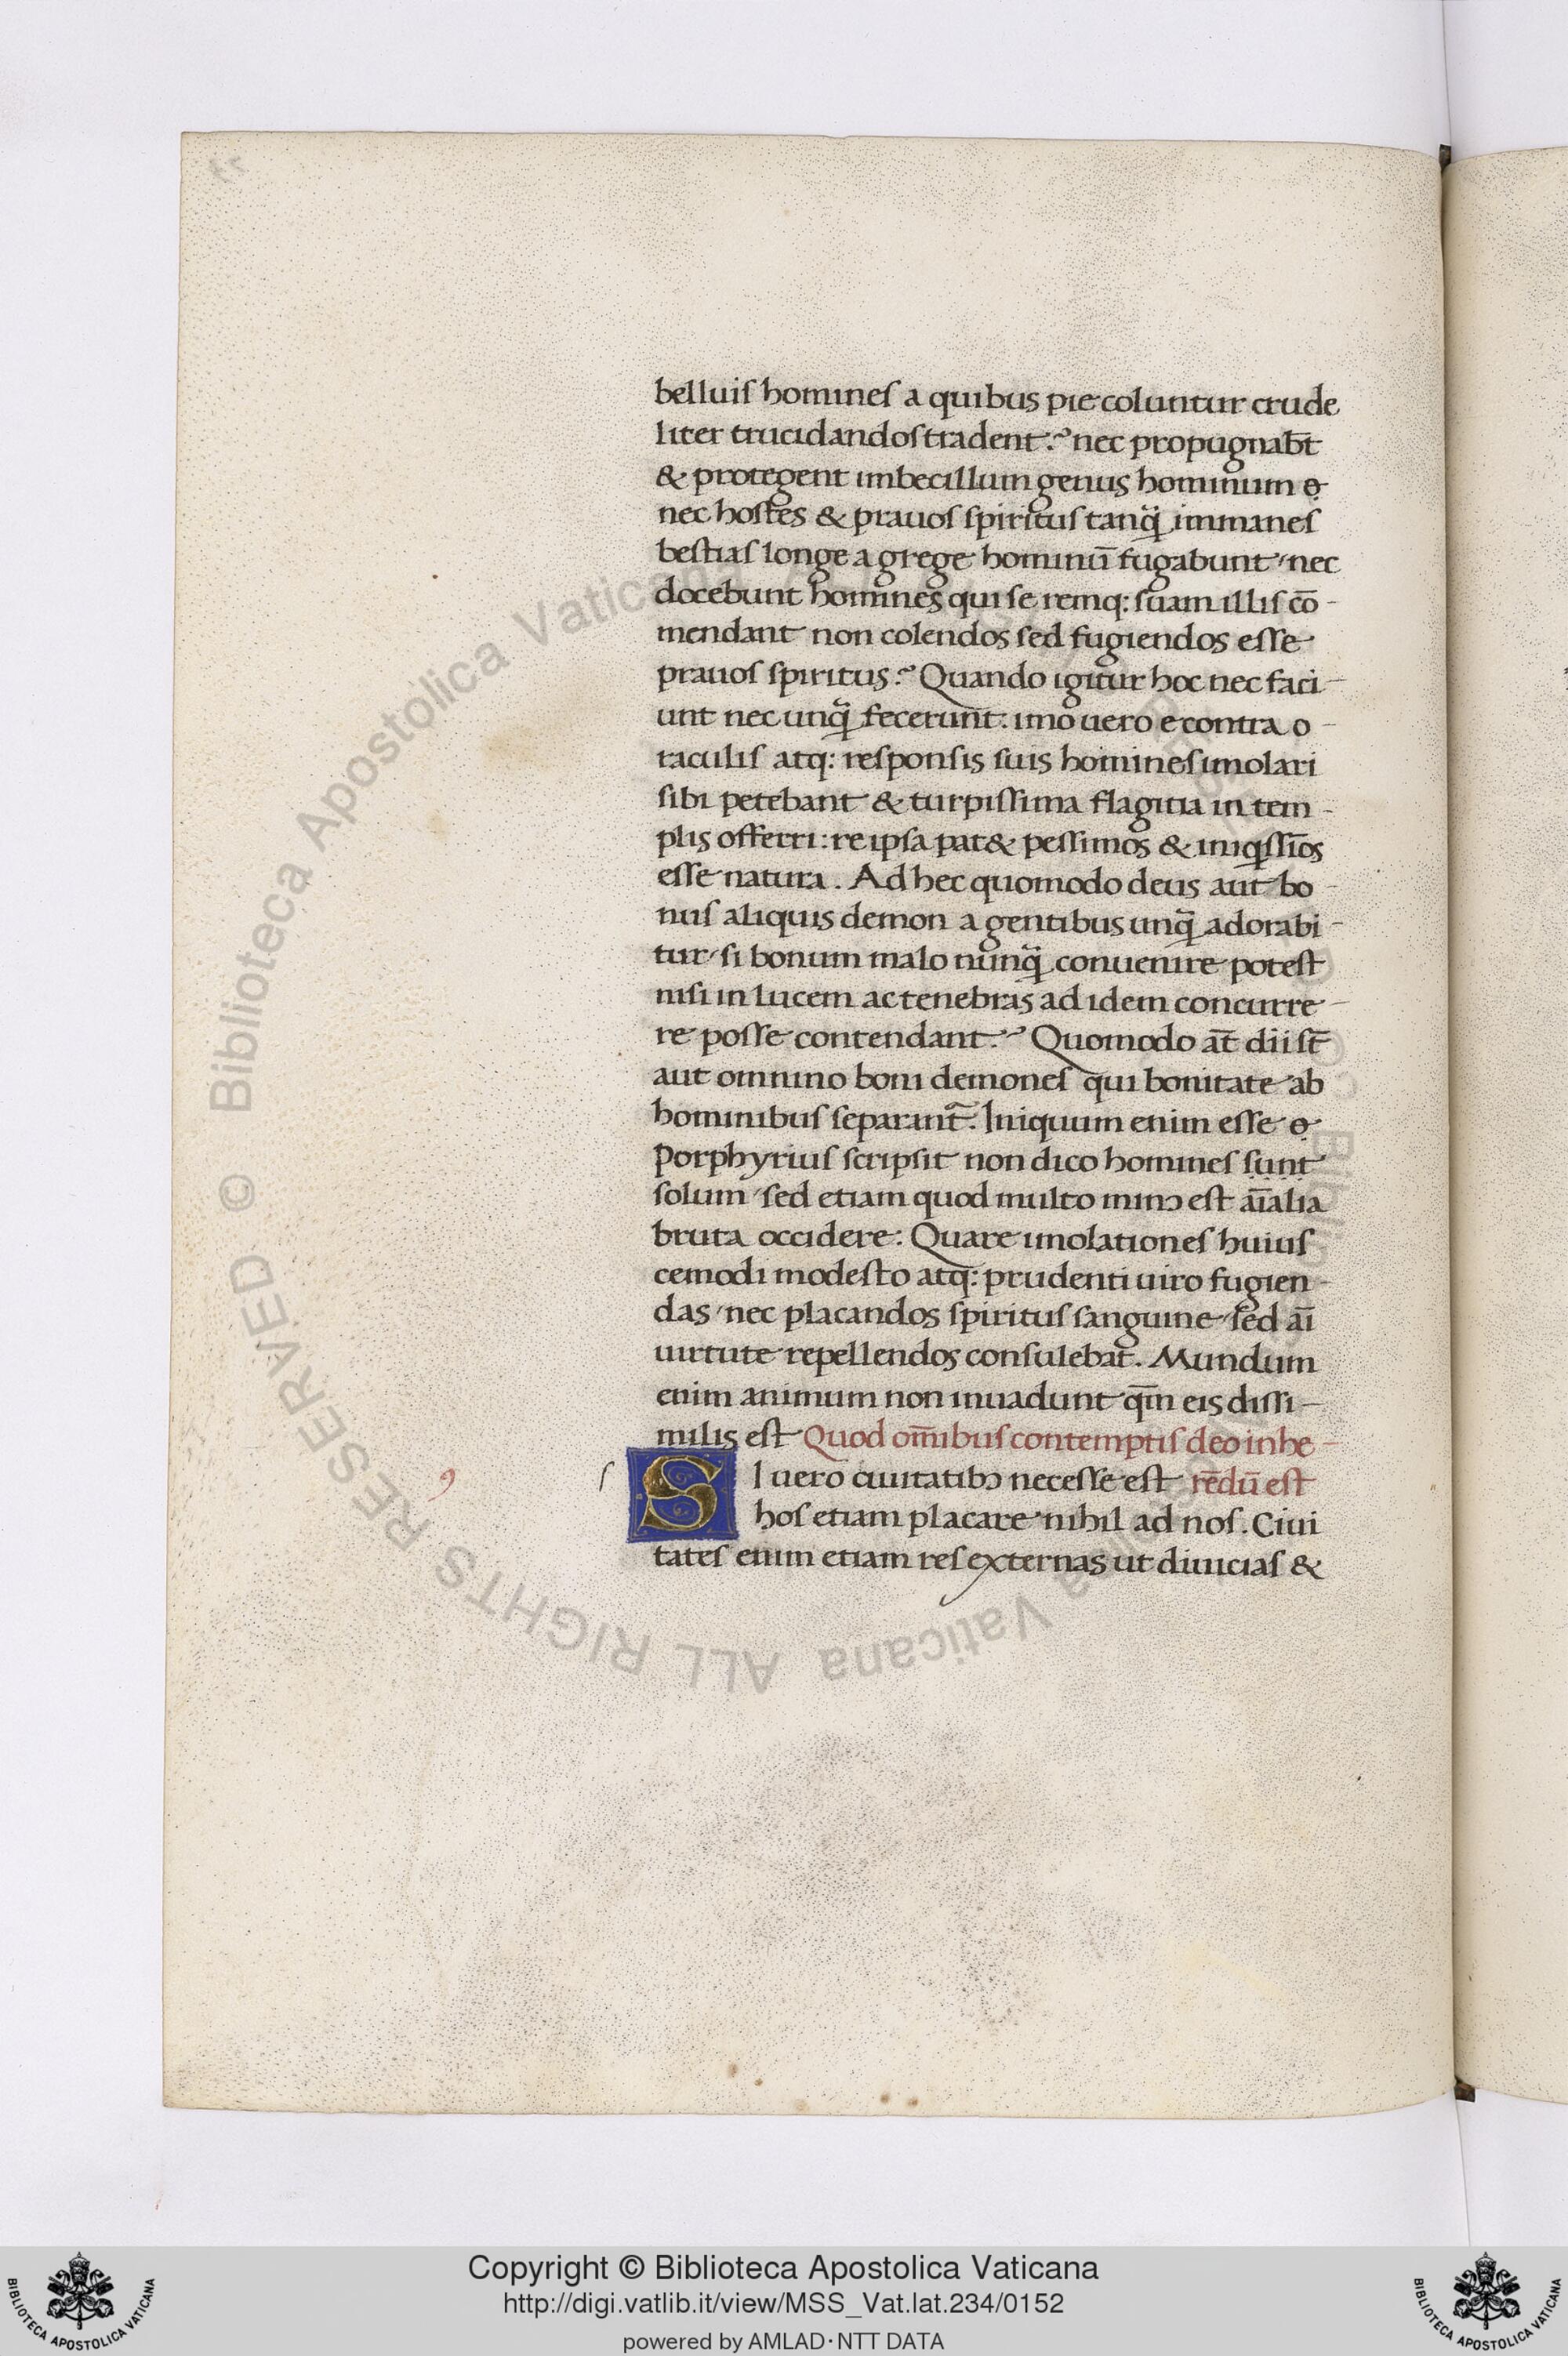 belluis homines a quibus pie coluntur crude
liter trucidandos tradent? nec propugnab̄t
& protegent imbecillum genus hominum ꝙ
nec hostes & prauos spiritus tanq̃ immanes
bestias longe a grege hominū fugabunt / nec
docebunt homines qui se remq: suam illis cō-
mendant non colendos sed fugiendos esse
prauos spiritus? Quando igitur hoc nec faci-
unt nec unq̃ fecerunt: imo uero e contra o-
raculis atq: responsis suis homines imolari
sibi petebant & turpissima flagitia in tem-
plis offerri: re ipsa pat& pessimos & iniqssīos
esse natura. Ad hec quomodo deus aut bo-
nus aliquis demon a gentibus unq̃ adorabi-
tur / si bonum malo nunq̃ conuenire potest
nisi in lucem ac tenebras ad idem concurre-
re posse contendant? Quomodo at̄ dii st̄
aut omnino boni demones qui bonitate ab
hominibus separant̃. Iniquum enim esse ꝙ
Porphyrius scripsit non dico homines sunt
solum / sed etiam quod multo minꝰ est āīalia
bruta occidere: Quare imolationes huius
cemodi modesto atq: prudenti uiro fugien-
das / nec placandos spiritus sanguine / sed aī
uirtute repellendos consulebat. Mundum
enim animum non inuadunt qm̄ eis dissi-
milis est Quod om̄ibus contemptis deo inhe-
s SI uero ciuitatibꝰ necesse est rēdū est
hos etiam placare nihil ad nos. Ciui
tates enim etiam res externas ut diuicias &
Copyright © Biblioteca Apostolica Vaticana
http://digi.vatlib.it/view/MSS_Vat.lat.234/0152
powered by AMLAD·NTT DATA
BIBLIOTECA APOSTOLICA VATICANA
BIBLIOTECA APOSTOLICA VATICANA
© Biblioteca Apostolica Vaticana ALL RIGHTS RESERVED